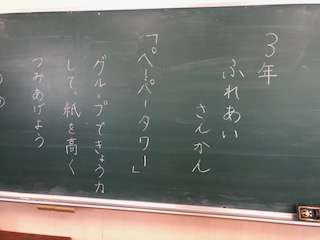 3年
ふれあい
さんかん
「ペーパータワー」
グループできょう力
して、紙を高く
つみあげよう